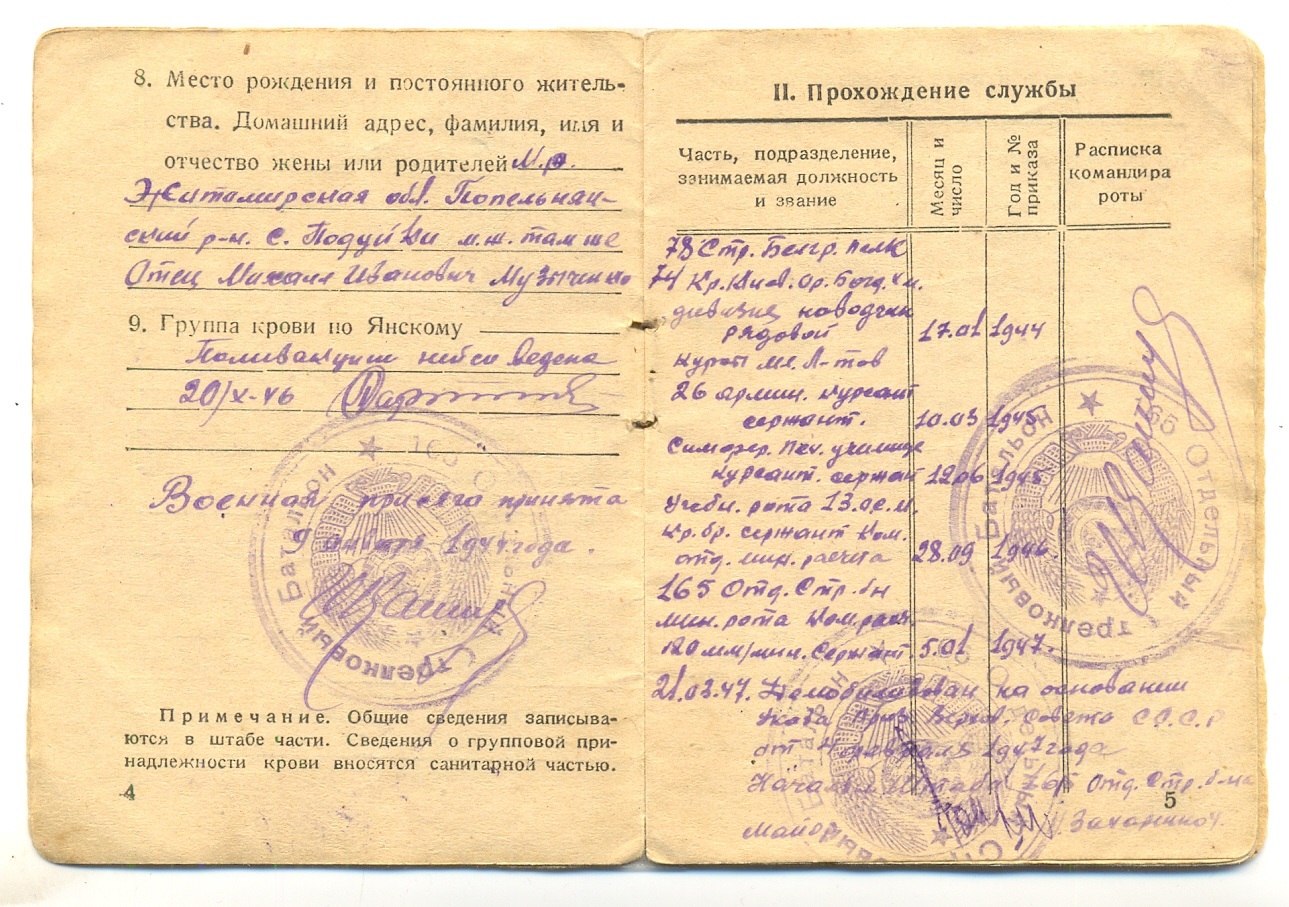 8. Место рождения и постоянного житель-
ства. Домашний адрес, фамилия, имя и
отчество жены или родителей М.р.
Житамирская обл. Попельнян-
ский р-н. с. м.ж. там же
Отец Михаил Иванович Музыченко
9. Группа крови по Янскому
20/X-46
Военная присяга принята
января 1944 года.
165 Отдельный Стрелковый Батальон
Примечание. Общие сведения записыва-
ются в штабе части. Сведения о групповой при-
надлежности крови вносятся санитарной частью.
4
II. Прохождение службы
Часть, подразделение,
занимаемая должность
и звание
Месяц и
число
Год и №
приказа
Расписка
командира
роты
78 Стр. Белгр. полк
74 Кр. Киев. Ор. Богд. Хм.
дивизие наводчик
рядовой 17.01 1944
Курсы мл. л-тов
26 армии. курсант
сержант. 10.03 1945
Симфер. Пех. училище
курсант. сержант 12.06 1945
Учебн. рота 13.о.с.м.
Кр. бр. сержант ком.
отд. мин. расчета 28.09 1946.
165 Отд. Стр. бн
мин. рота Ком. расч.
120 мм/мин. Сержант. 5.01 1947.
165 Отдельный Стрелковый Батальон
21.03.47. Демобилизован на основании
Указа През. Верхов. Совета С.С.С.Р
от февраля 1947 года
Начальн. Штаба 165 Отд. Стр. б-на
майор
5